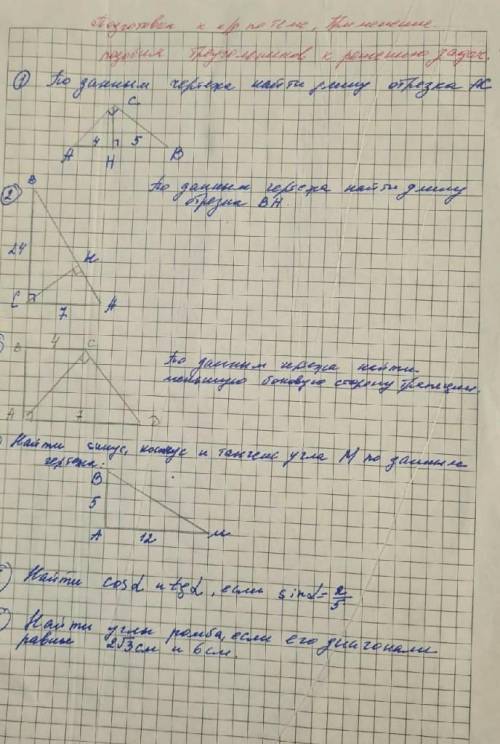 Подготовка к к/р по теме „Применение
подобия треугольников к решению задач.
① По данным чертежа найти длину отрезка AC
C
4 5
A H B
② По данным чертежа найти длину
отрезка BH.
B
24
H
C 7 A
4
B C
По данным чертежа найти
меньшую боковую сторону трапеции.
A 7 D
Найти синус, косинус и тангенс угла M по данным
чертежа:
B
5
A 12 M
Найти cosα и tgα, если sinα = 2/5
Найти углы ромба, если его диагонали
равны 2√3 см и 6 см.